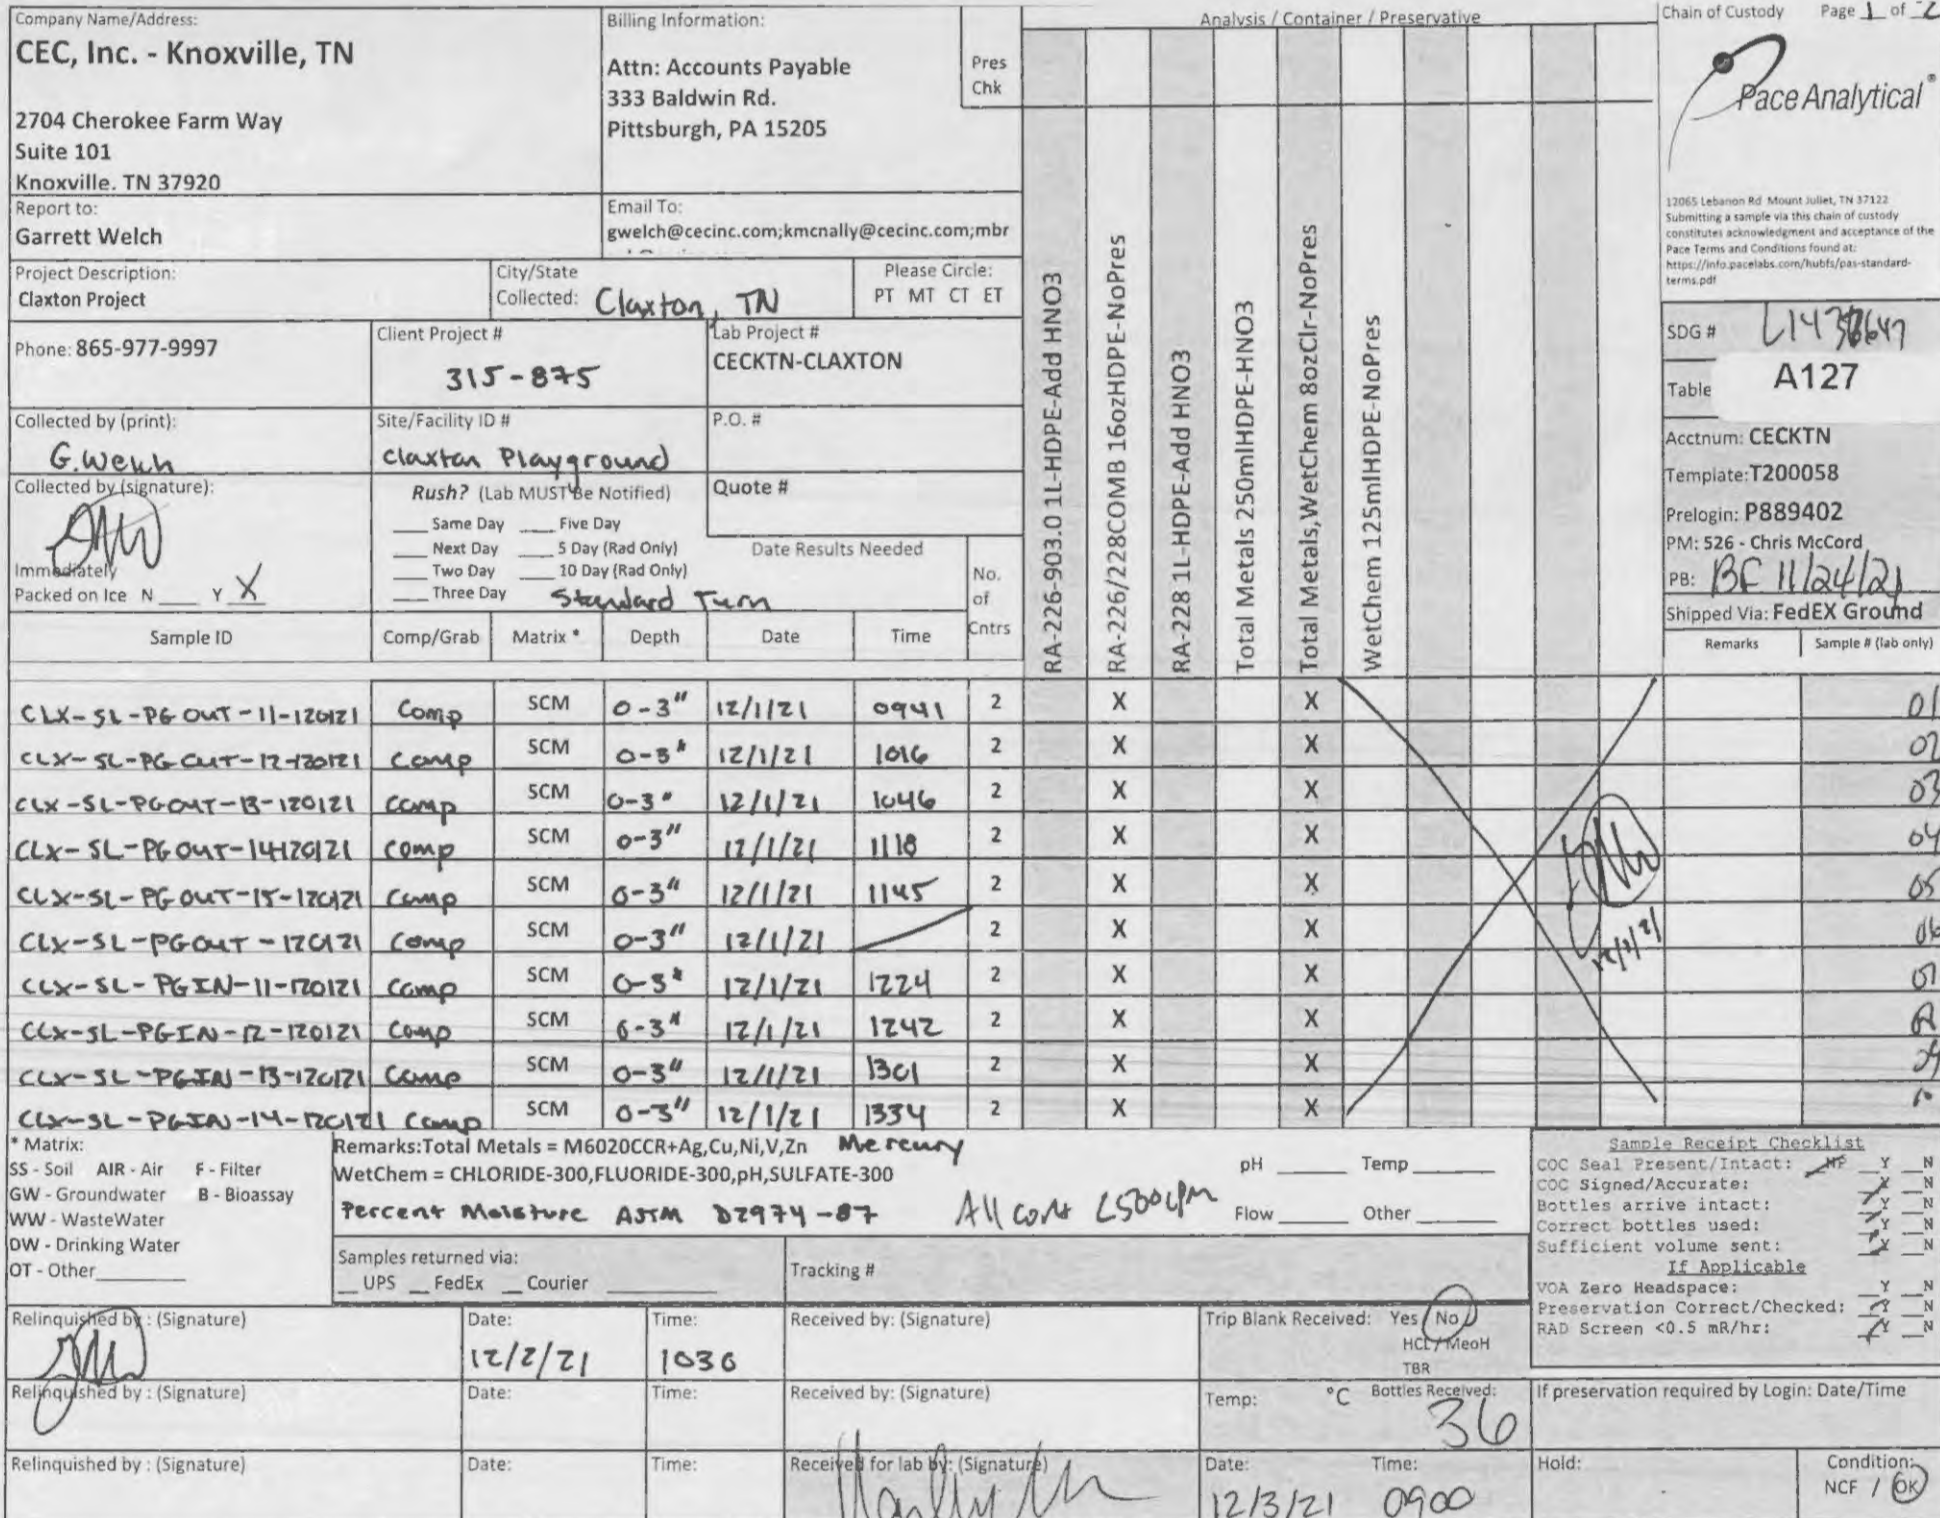 Company Name/Address:
CEC, Inc. - Knoxville, TN
2704 Cherokee Farm Way
Suite 101
Knoxville. TN 37920
Billing Information:
Attn: Accounts Payable
333 Baldwin Rd.
Pittsburgh, PA 15205
Pres
Chk
Analysis / Container / Preservative
Chain of Custody Page 1 of 2
Pace Analytical®
12065 Lebanon Rd Mount Juliet, TN 37122
Submitting a sample via this chain of custody
constitutes acknowledgment and acceptance of the
Pace Terms and Conditions found at:
https://info.pacelabs.com/hubfs/pas-standard-
terms.pdf
Report to:
Garrett Welch
Email To:
gwelch@cecinc.com;kmcnally@cecinc.com;mbr
Project Description:
Claxton Project
City/State
Collected: Claxton, TN
Please Circle:
PT MT CT ET
Phone: 865-977-9997
Client Project #
315-875
Lab Project #
CECKTN-CLAXTON
Collected by (print):
G. Welch
Site/Facility ID #
Claxton Playground
P.O. #
Collected by (signature):
Rush? (Lab MUST Be Notified)
Same Day Five Day
Next Day 5 Day (Rad Only)
Two Day 10 Day (Rad Only)
Three Day Standard Turn
Quote #
Date Results Needed
Immediately
Packed on Ice N ___ Y X
No.
of
Cntrs
RA-226-903.0 1L-HDPE-Add HNO3
RA-226/228COMB 16ozHDPE-NoPres
RA-228 1L-HDPE-Add HNO3
Total Metals 250mlHDPE-HNO3
Total Metals,WetChem 8ozClr-NoPres
WetChem 125mlHDPE-NoPres
SDG #
Table A127
Acctnum: CECKTN
Template:T200058
Prelogin: P889402
PM: 526 - Chris McCord
PB: BF 11/24/21
Shipped Via: FedEX Ground
Sample ID Comp/Grab Matrix * Depth Date Time Remarks Sample # (lab only)
CLX-SL-PGOUT-11-120121 Comp SCM 0-3" 12/1/21 0941 2 X X 01
CLX-SL-PGOUT-12-120121 Comp SCM 0-3" 12/1/21 1016 2 X X 02
CLX-SL-PGOUT-13-120121 Comp SCM 0-3" 12/1/21 1046 2 X X 03
CLX-SL-PGOUT-14120121 Comp SCM 0-3" 12/1/21 1118 2 X X 04
CLX-SL-PGOUT-15-120121 Comp SCM 0-3" 12/1/21 1145 2 X X 05
CLX-SL-PGOUT-120121 Comp SCM 0-3" 12/1/21 2 X X 06
CLX-SL-PGIN-11-120121 Comp SCM 0-3" 12/1/21 1224 2 X X 07
CLX-SL-PGIN-12-120121 Comp SCM 0-3" 12/1/21 1242 2 X X
CLX-SL-PGIN-13-120121 Comp SCM 0-3" 12/1/21 1301 2 X X 09
CLX-SL-PGIN-14-120121 Comp SCM 0-3" 12/1/21 1334 2 X X 10
* Matrix:
SS - Soil AIR - Air F - Filter
GW - Groundwater B - Bioassay
WW - WasteWater
DW - Drinking Water
OT - Other
Remarks:Total Metals = M6020CCR+Ag,Cu,Ni,V,Zn Mercury
WetChem = CHLORIDE-300,FLUORIDE-300,pH,SULFATE-300
Percent Moisture ASTM D2974-87
pH ___ Temp ___
Flow ___ Other ___
Sample Receipt Checklist
COC Seal Present/Intact: NP Y N
COC Signed/Accurate: Y N
Bottles arrive intact: Y N
Correct bottles used: Y N
Sufficient volume sent: Y N
If Applicable
VOA Zero Headspace: Y N
Preservation Correct/Checked: Y N
RAD Screen <0.5 mR/hr: Y N
Samples returned via:
UPS FedEx Courier
Tracking #
Relinquished by : (Signature) Date: 12/2/21 Time: 1030 Received by: (Signature)
Trip Blank Received: Yes / No
HCL / MeoH
TBR
Relinquished by : (Signature) Date: Time: Received by: (Signature)
Temp: °C Bottles Received: 36
If preservation required by Login: Date/Time
Relinquished by : (Signature) Date: Time: Received for lab by: (Signature)
Date: 12/3/21 Time: 0900
Hold:
Condition:
NCF / OK